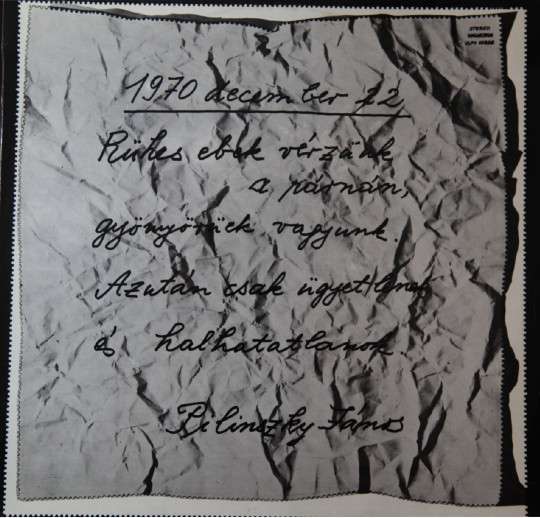 STEREO
1970 december 22
Rühes ebek vérzünk
a párnán,
gyönyörűek vagyunk.
Azután csak ügyetlenek
és halhatatlanok.
Pilinszky János